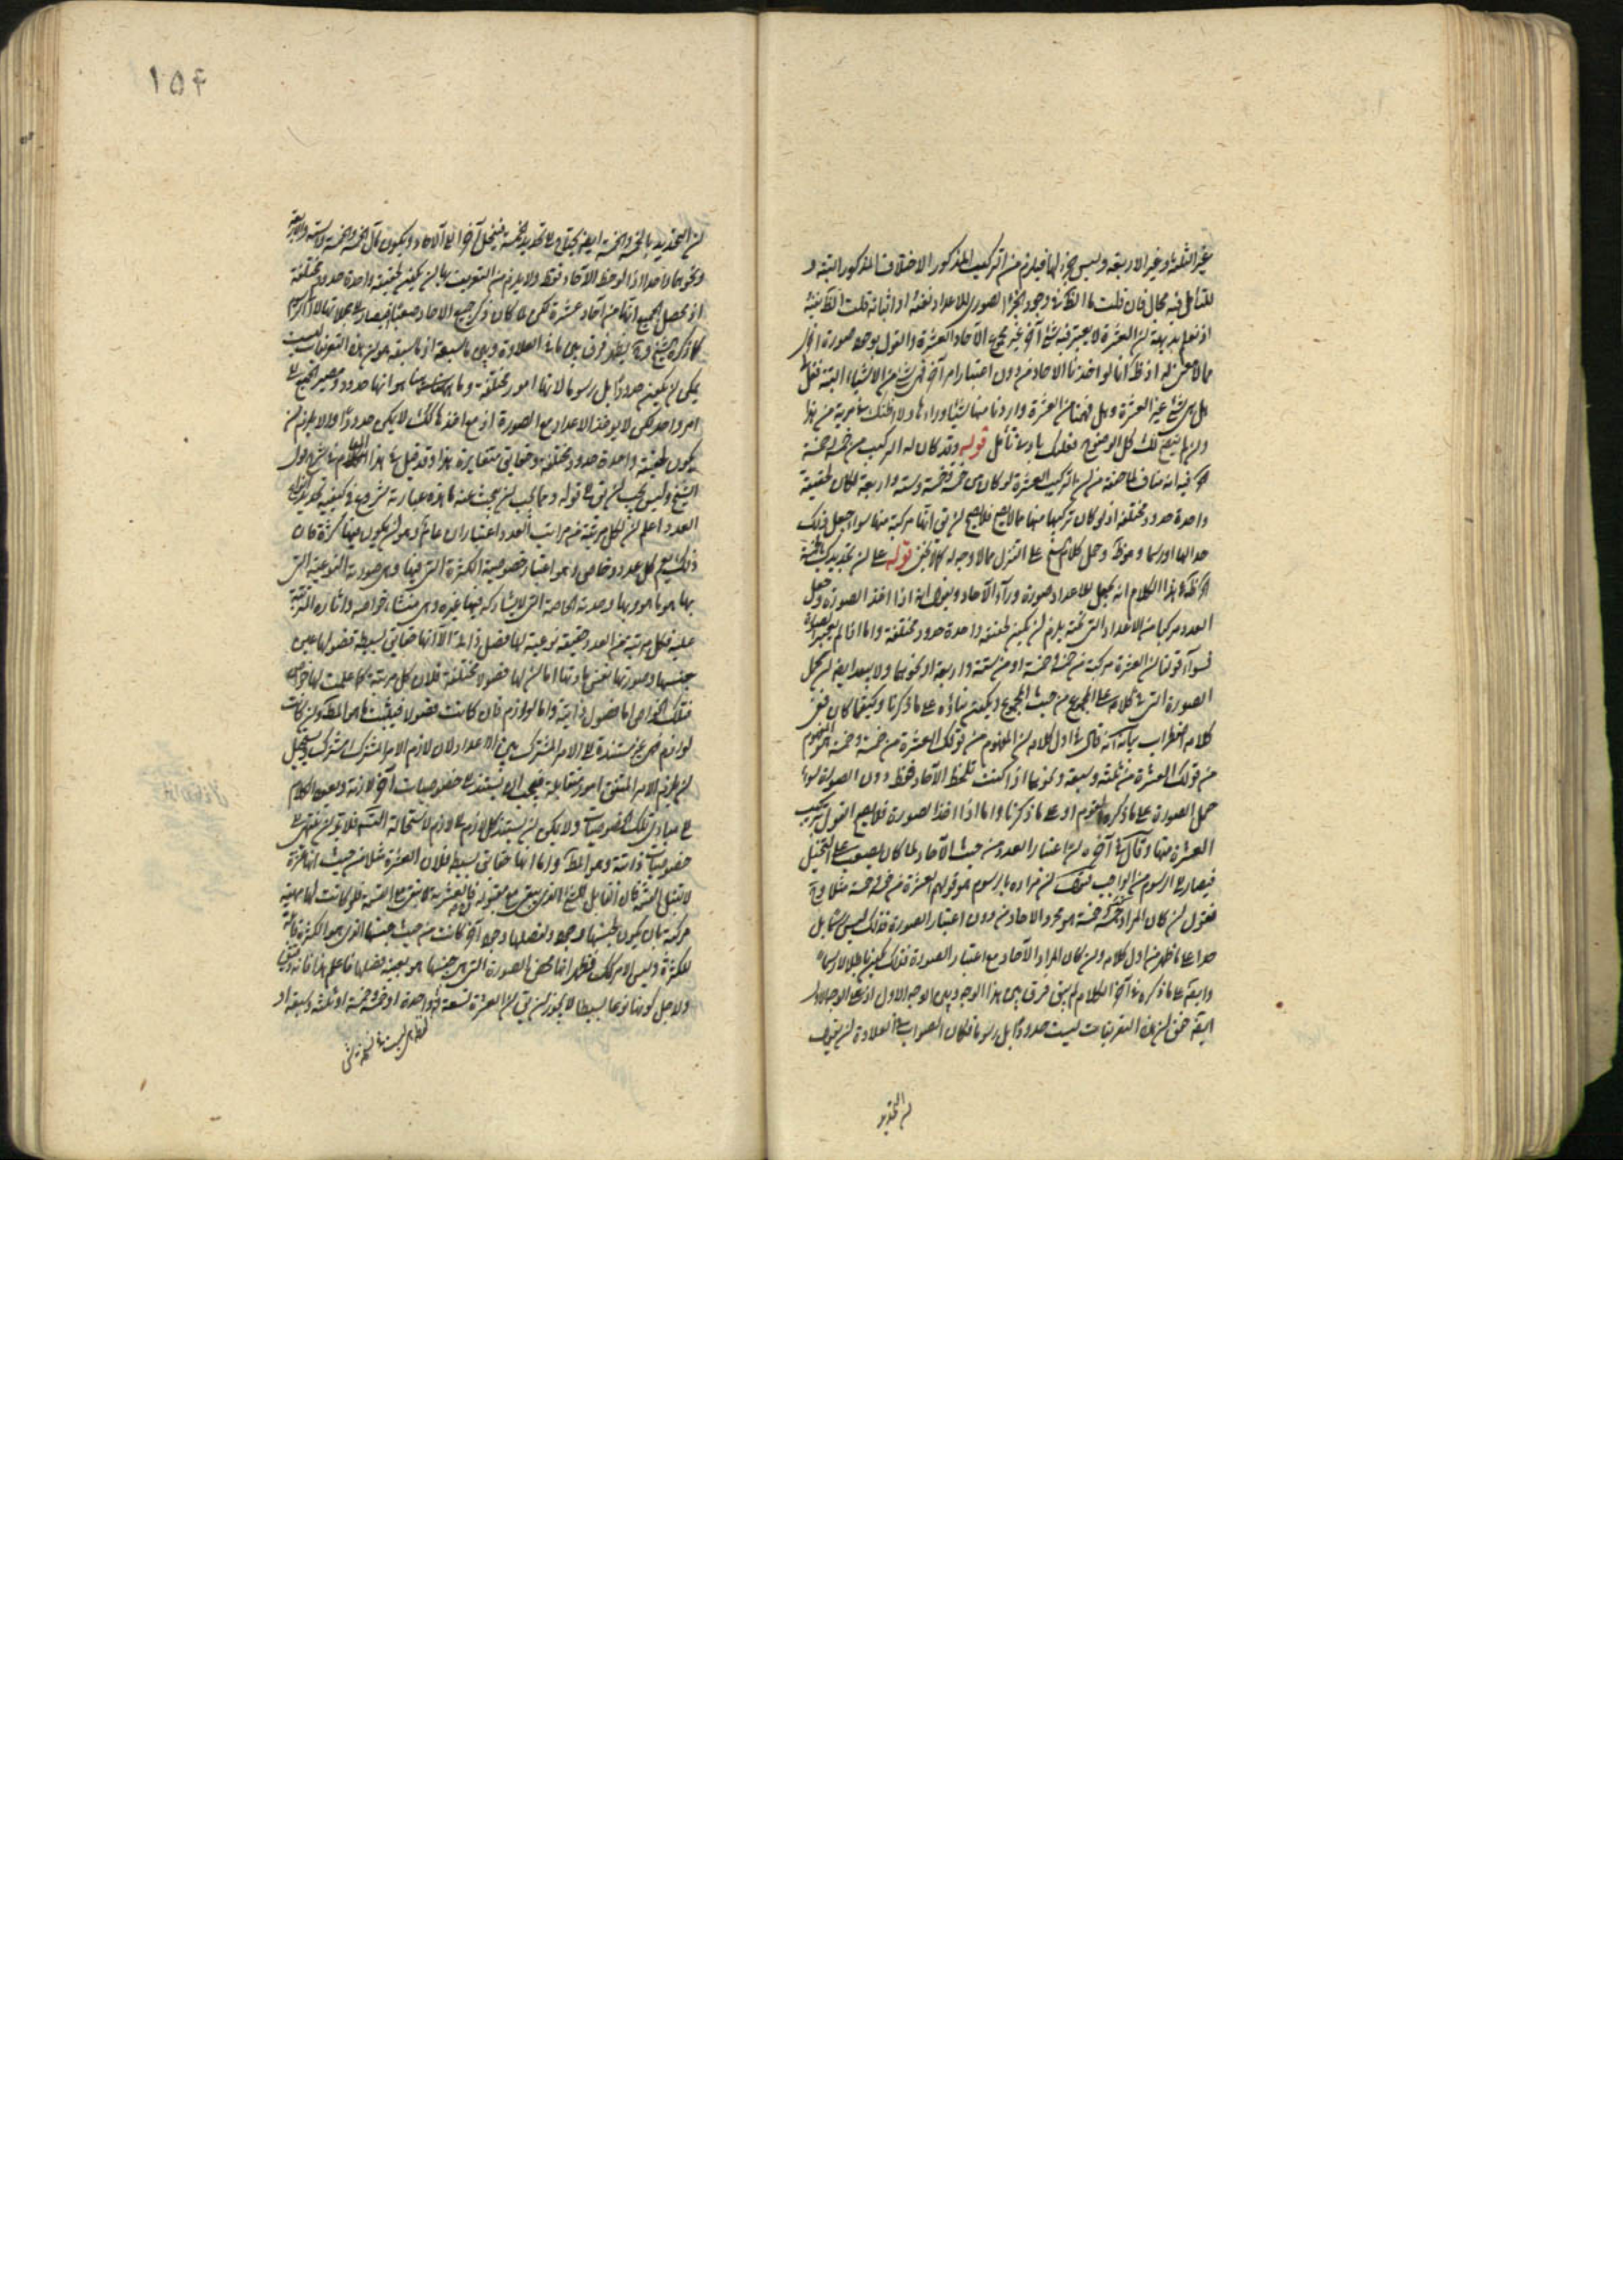 غير الثلثة وغير الاربعة وليس جزء لها فيلزم من التركيب المذكور الاختلاف المذكور البتة و
للتأمل فيه مجال فان قلت ما الظ نفى وجود الجزء الصورى للاعداد نفسه او اثباته قلت الظ نفيه
اذ نعلم بديهة ان العشرة لا يعتبر فيه شئ آخر غير مجموع الآحاد العشرة والقول بوجود صورة اخرى
مما لا معنى له اذ ظ انا لو اخذنا الآحاد من دون اعتبار امر آخر فهى شئ من الاشياء البتة فنقل
هل هى شئ غير العشرة وهل فهمنا من العشرة واردنا منها شيئا وراءها ولا اظنك فى مرية من هذا
وان لم يتضح لك كل الوضوح فعليك بادنى تأمل قوله وقد كان له التركيب من خمسة وخمسة
آه فيه انه مناف لما ضمنه من ان تركيب العشرة لو كان من خمسة وخمسة وستة واربعة لكان لحقيقة
واحدة حدود مختلفة اذ لو كان تركيبها منها مما لا يصح فلا يصح ان يق انها مركبة منها سواء جعل ذلك
حدا لها او رسما وهو ظ وحمل كلام الشيخ على التنزل مما لا وجه له كما لا يخفى قوله على ان تحديدك بالخمسة
آه ظ هذا الكلام انه يجعل للاعداد صورة وراء الآحاد ويقول انه اذا اخذ الصورة وجعل
العدد مركبا من الاعداد التى تحته يلزم ان يكون لحقيقة واحدة حدود مختلفة واما اذا لم يعتبر الصورة
فسواء قولنا ان العشرة مركبة من خمسة وخمسة او من ستة واربعة او نحوهما ولا يبعد ايضا ان يحمل
الصورة التى فى كلامه على المجموع من حيث المجموع ويكون بناؤه على ما ذكرنا وكيفما كان ففى
كلامه اضطراب بيانه انه قال فى اول كلامه ان المفهوم من قولك العشرة من خمسة وخمسة هو المفهوم
من قولك العشرة من ثلثة وسبعة ونحوهما اذا كنت تلحظ الآحاد فقط دون الصورة سواء
حمل الصورة على ما ذكره القوم او على ما ذكرنا واما اذا اخذ الصورة فلا يصح القول بتركيب
العشرة منها وقال فى آخره ان اعتبار العدد من حيث الآحاد لما كان يصعب على التخيل
فيصار الى الرسوم من الواجب فنقول ان مراده بالرسوم هو قولهم العشرة من خمسة وخمسة مثلا وح
فنقول ان كان المراد بخمسة وخمسة هو مجرد الآحاد من دون اعتبار الصورة فذلك ليس رسما بل
حدا على ما ظهر من اول كلامه وان كان المراد الآحاد مع اعتبار الصورة فذلك يكون باطلا لا رسما
وايضا على ما ذكره فى آخر الكلام لم يبق فرق بين هذا الوجه وبين الوجه الاول اذ على الوجه الاول
ايضا حقق ان هذه التعريفات ليست حدودا بل رسوما فكان الصواب فى العلاوة ان يقول
ان التحديد
١٥۴
ان التحديد بالخمسة والخمسة ايضا يحتاج الى تحديد الخمسة فينحل آخرا الى الآحاد ويكون مآل الخمسة والخمسة والستة والاربعة
ونحوهما واحدا اذا لوحظ الآحاد فقط ولا يلزم من التعريف بها ان يكون لحقيقة واحدة حدود مختلفة
اذ محصل الجميع انها من آحاد عشرة لكن لما كان ذكر جميع الآحاد صعبا فيصار الى مجملاتها لا الى الرسوم
كما ذكره الشيخ وح يظهر فرق بين ما فى العلاوة وبين ما سبقه اذ ما سبقه هو ان هذه التعريفات ليست
يمكن ان يكون حدودا بل رسوما لانها امور مختلفة وما هنا هو انها حدود ومصير الجميع الى
امر واحد لكن لا يؤخذ الاعداد مع الصورة اذ مع اخذها كذلك لا يكون حدودا ولا يلزم ان
يكون لحقيقة واحدة حدود مختلفة وحقايق متغايرة هذا وقد قيل فى هذا المقام فى شرح قول
الشيخ وليس يجب ان يق فى قوله ومما يجب ان يبحث عنه ما هذه عبارته شروع فى كيفية تحديد انواع
العدد اعلم ان لكل مرتبة من مراتب العدد اعتباران عام وهو ان يكون فيها كثرة فان
ذلك يعم كل عدد وخاص وهو اعتبار خصوصية الكثرة التى فيها وهى صورته النوعية التى
بها هو ما هو وبها وحدته الخاصة التى لا يشاركه فيها غيره وهى منشاء خواصه وآثاره المترتبة
عليه فكل مرتبة من العدد حقيقة نوعية لها فصل ذاتى الا انها حقايق بسيطة فصولها عين
جنسها وصورتها نفس مادتها اما ان لها فصولا مختلفة فلان كل مرتبة كما علمت لها خواص
فتلك الخواص اما فصول ذاتية واما لوازم فان كانت فصولا فيثبت ما هو المط وان كانت
لوازم فهى غير مستندة الى الامر المشترك بين الاعداد لان لازم الامر المشترك مشترك ويستحيل
ان يلزم الامر المتفق امور متقابلة فيجب ان يستند الى خصوصيات آخر لازمة ويعود الكلام
الى مبادى تلك الخصوصيات ولا يمكن ان يستند كل لازم الى لازم لاستحالة التسلسل فلا بد ان ينتهى الى
خصوصيات ذاتية وهو المط واما انها حقايق بسيطة فلان العشرة مثلا من حيث انها عشرة
لا تقبل القسمة فان القابل للشئ الذى يبقى مع مقبوله والعشرية لا يبقى مع القسمة فلو كانت لها ماهية
مركبة بان يكون لجنسها وجود ولفصلها وجود آخر كانت من حيث جنسها الذى هو الكثرة قابلة
للكثرة وليس الامر كذلك فظهر انها محض الصورة التى هى جنسها هو بعينه فصلها فاعلم هذا فانه دقيق
ولاجل كونها نوعا بسيطا لا يجوز ان يق ان العشرة تسعة وواحدة او خمسة وخمسة او ثلثة وسبعة او